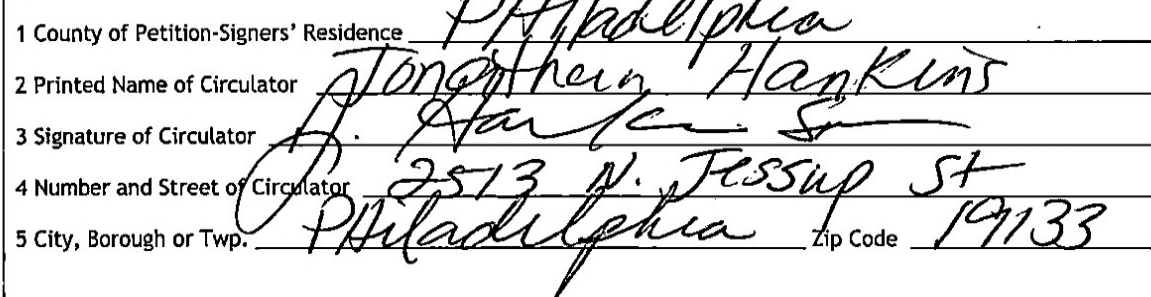 1 County of Petition-Signers' Residence PHiladelphia
2 Printed Name of Circulator Jonathan Hankins
3 Signature of Circulator J.
4 Number and Street of Circulator 2513 N. Jessup St
5 City, Borough or Twp. PHiladelphia Zip Code 19133